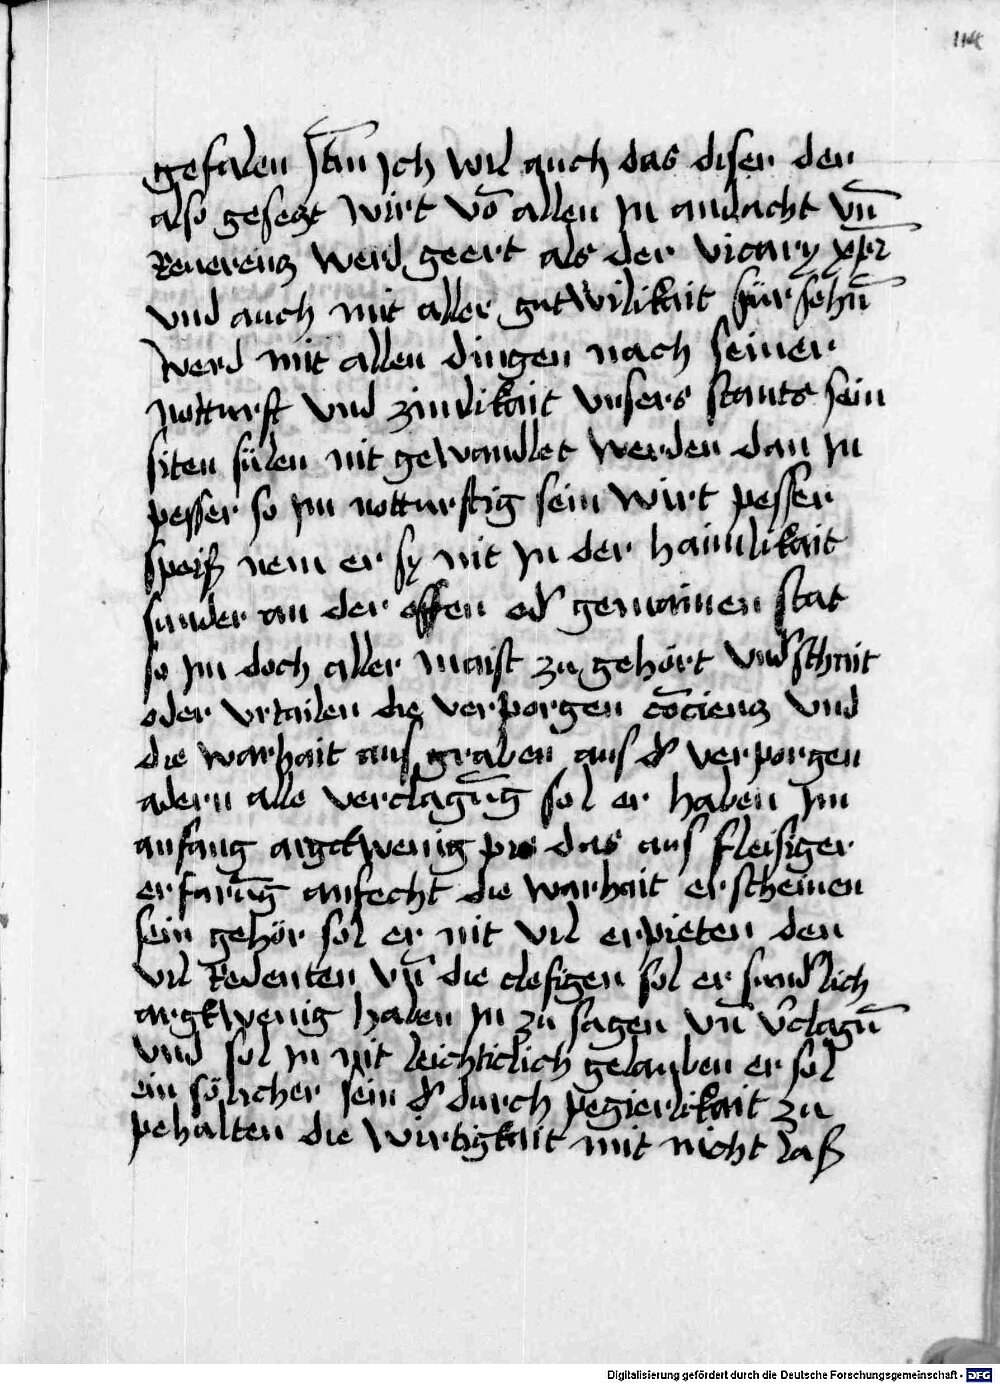 114
gefalen Jtm̄ Jch wil auch das diser der
also gesetzt wirt vō allen Jn andacht vn̄
Reuerentz werd geert als der vicary xpi
vnd auch mit aller gutwilikait für sehn̄
werd mit allen dingen nach seiner
notturft vnd zimlikait vnsers stants sein
siten sülen nit gewandlet werden dan Jn
pesser so Jm notturftig sein wirt pesser
speiß nem er sy nit Jn der haimlikait
sunder an der offen od gemainen stat
so Jm doch aller maist zu gehört vnd schnit
oder vrtailen die verporgen cōcientz vnd
die warhait aus graben aus d verporgen
adern alle verclagūg sol er haben Jm
anfang argckwenig pis das aus fleisiger
erfarūg anfecht die warhait erscheinen
sein gehör sol er nit vil erpieten den
vil Redenten vn̄ die clefigen sol er sundlich
argkwenig haben Jn zu sagen vn̄ v̄clagn̄
vnd sol Jn nit leichticlich gelauben er sol
ein sölicher sein d durch pegierlikait zu
pehalten die wirtigkait mit nicht laß
Digitalisierung gefördert durch die Deutsche Forschungsgemeinschaft - DFG